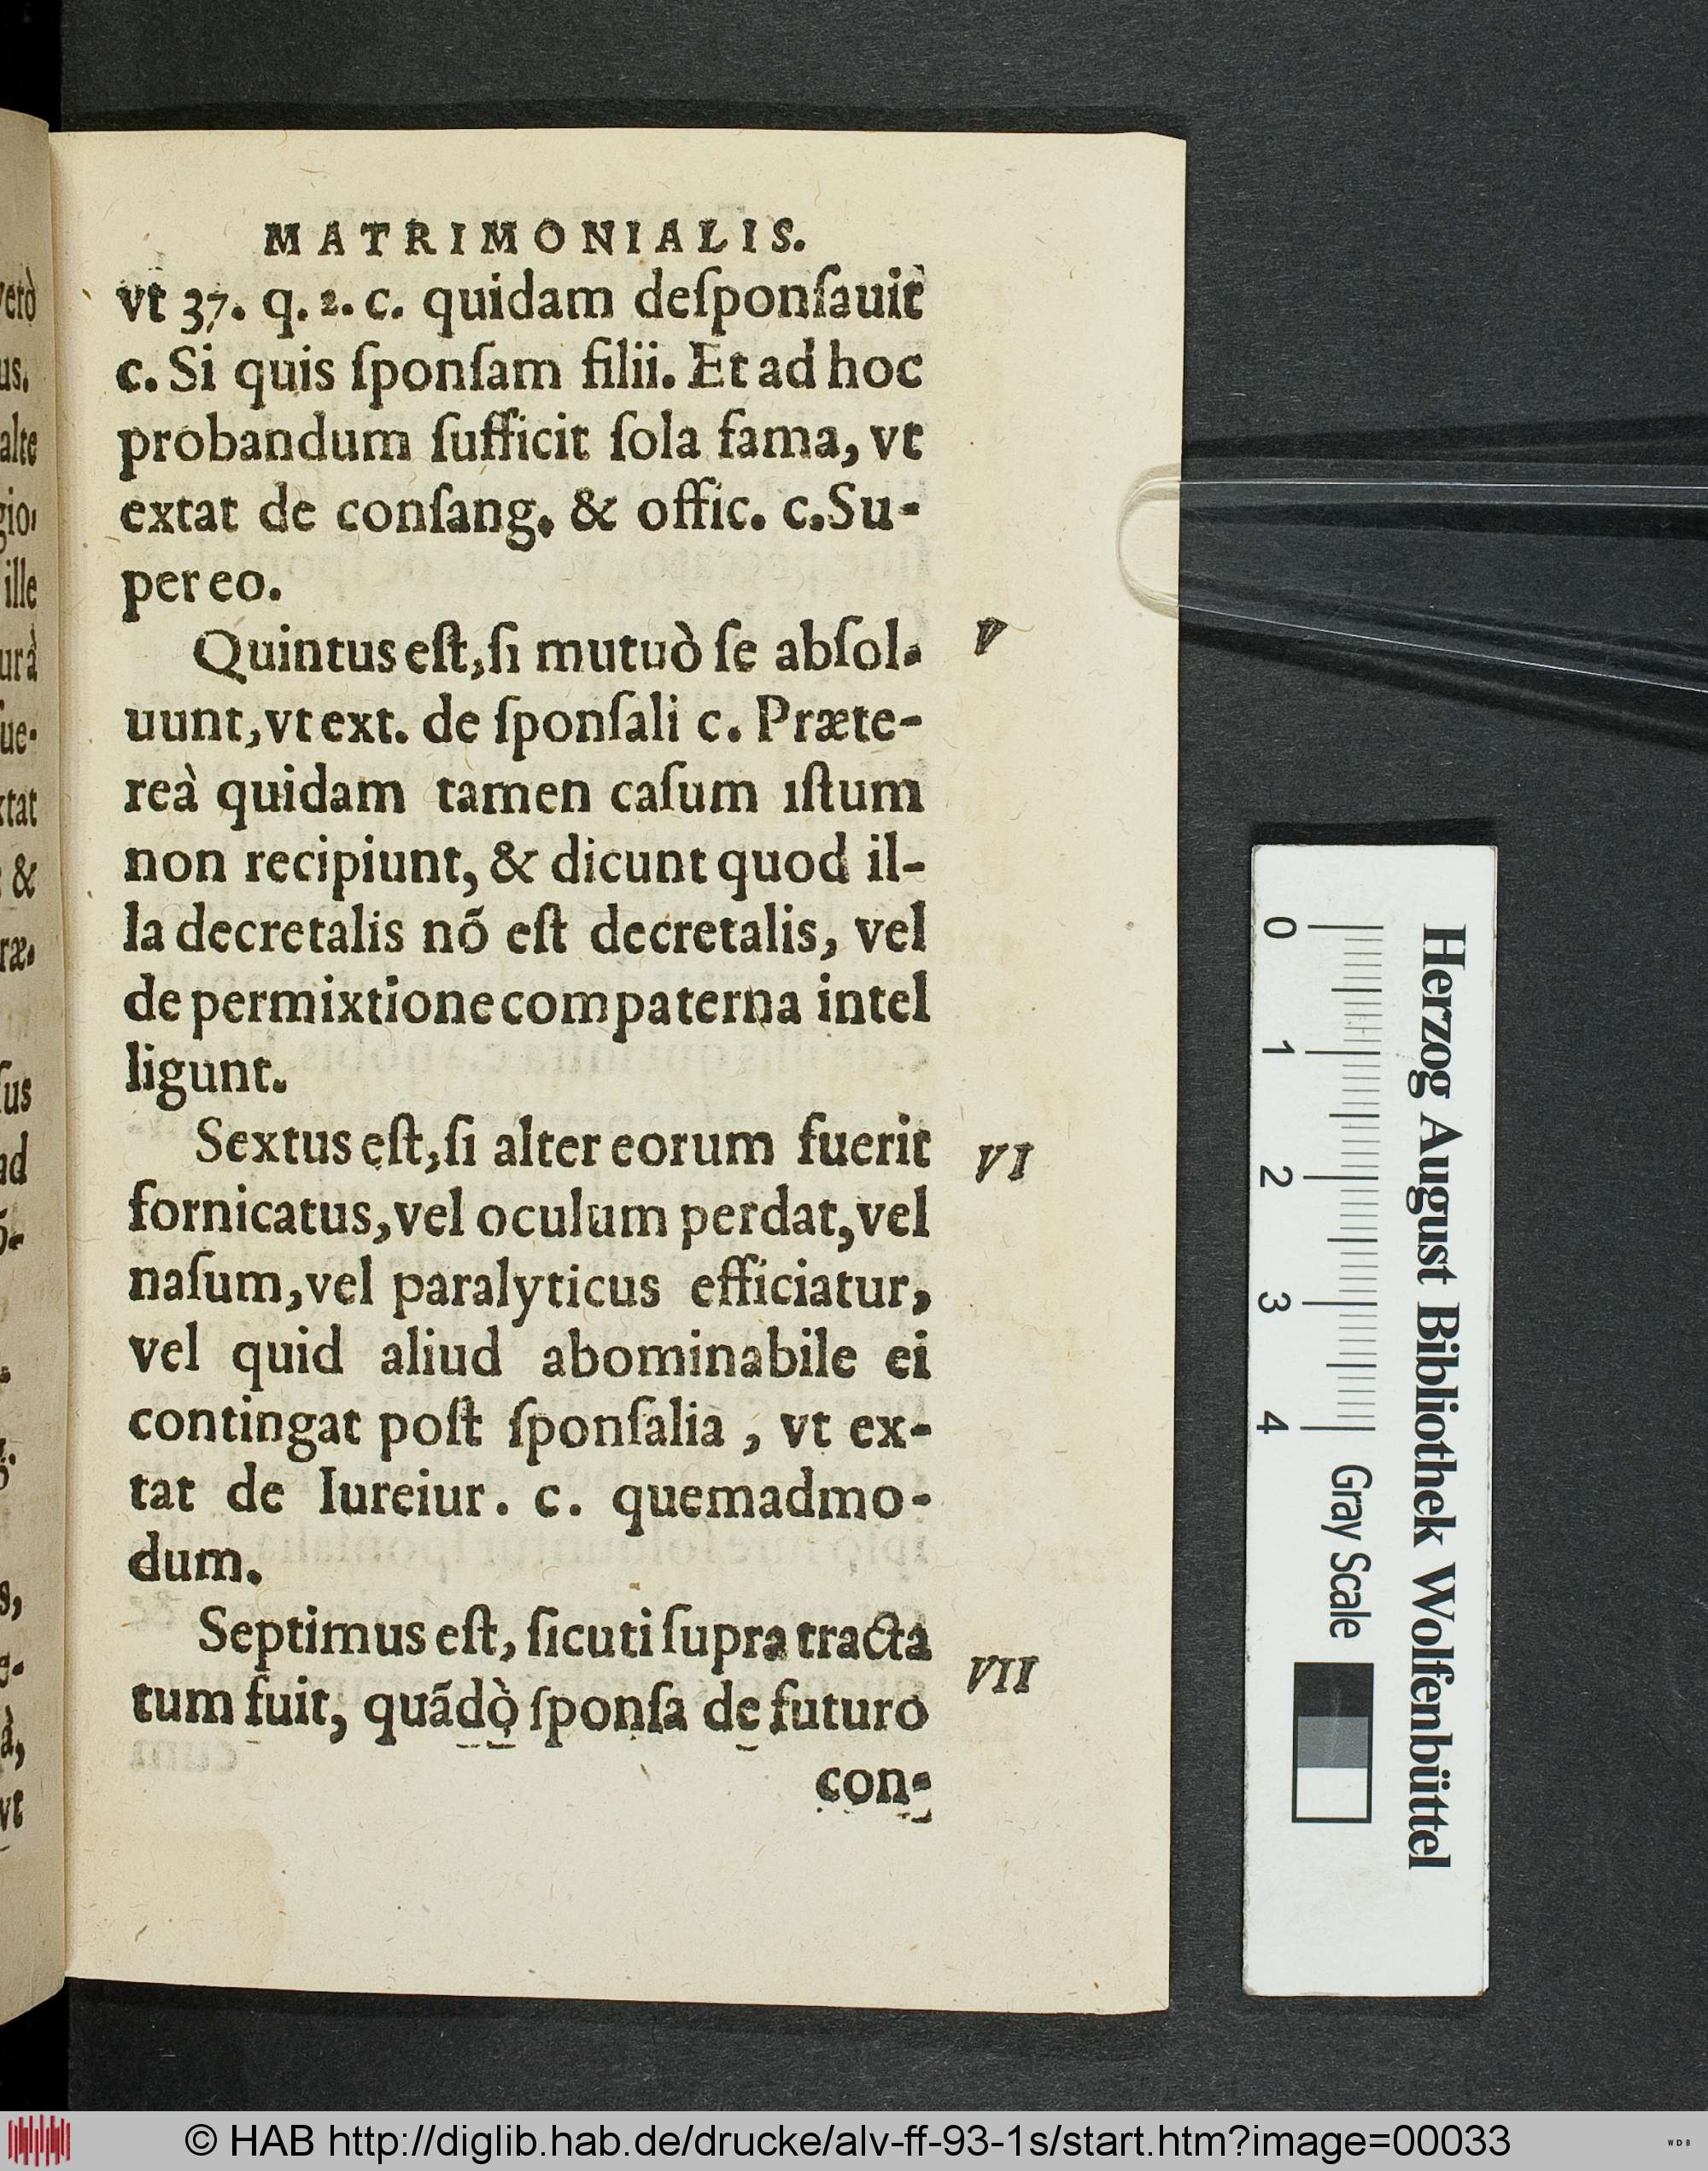 MATRIMONIALIS.
vt 37. q. 2. c. quidam deſponſauit
c. Si quis ſponſam filii. Et ad hoc
probandum ſufficit ſola fama, vt
extat de conſang. & offic. c. Su-
per eo.
Quintus eſt, ſi mutuò ſe abſol- V
uunt, vt ext. de ſponſali c. Præte-
reà quidam tamen caſum iſtum
non recipiunt, & dicunt quod il-
la decretalis nõ eſt decretalis, vel
de permixtione compaterna intel
ligunt.
Sextus eſt, ſi alter eorum fuerit VI
fornicatus, vel oculum perdat, vel
naſum, vel paralyticus efficiatur,
vel quid aliud abominabile ei
contingat poſt ſponſalia, vt ex-
tat de Iureiur. c. quemadmo-
dum.
Septimus eſt, ſicuti ſupra tracta VII
tum fuit, quãdò ſponſa de futuro
con-
vetò
us.
alte
gio
ille
urà
ue-
xtat
&
ræ-
ſus
ad
vt
0 1 2 3 4 Gray Scale
Herzog August Bibliothek Wolfenbüttel
© HAB http://diglib.hab.de/drucke/alv-ff-93-1s/start.htm?image=00033
WDB